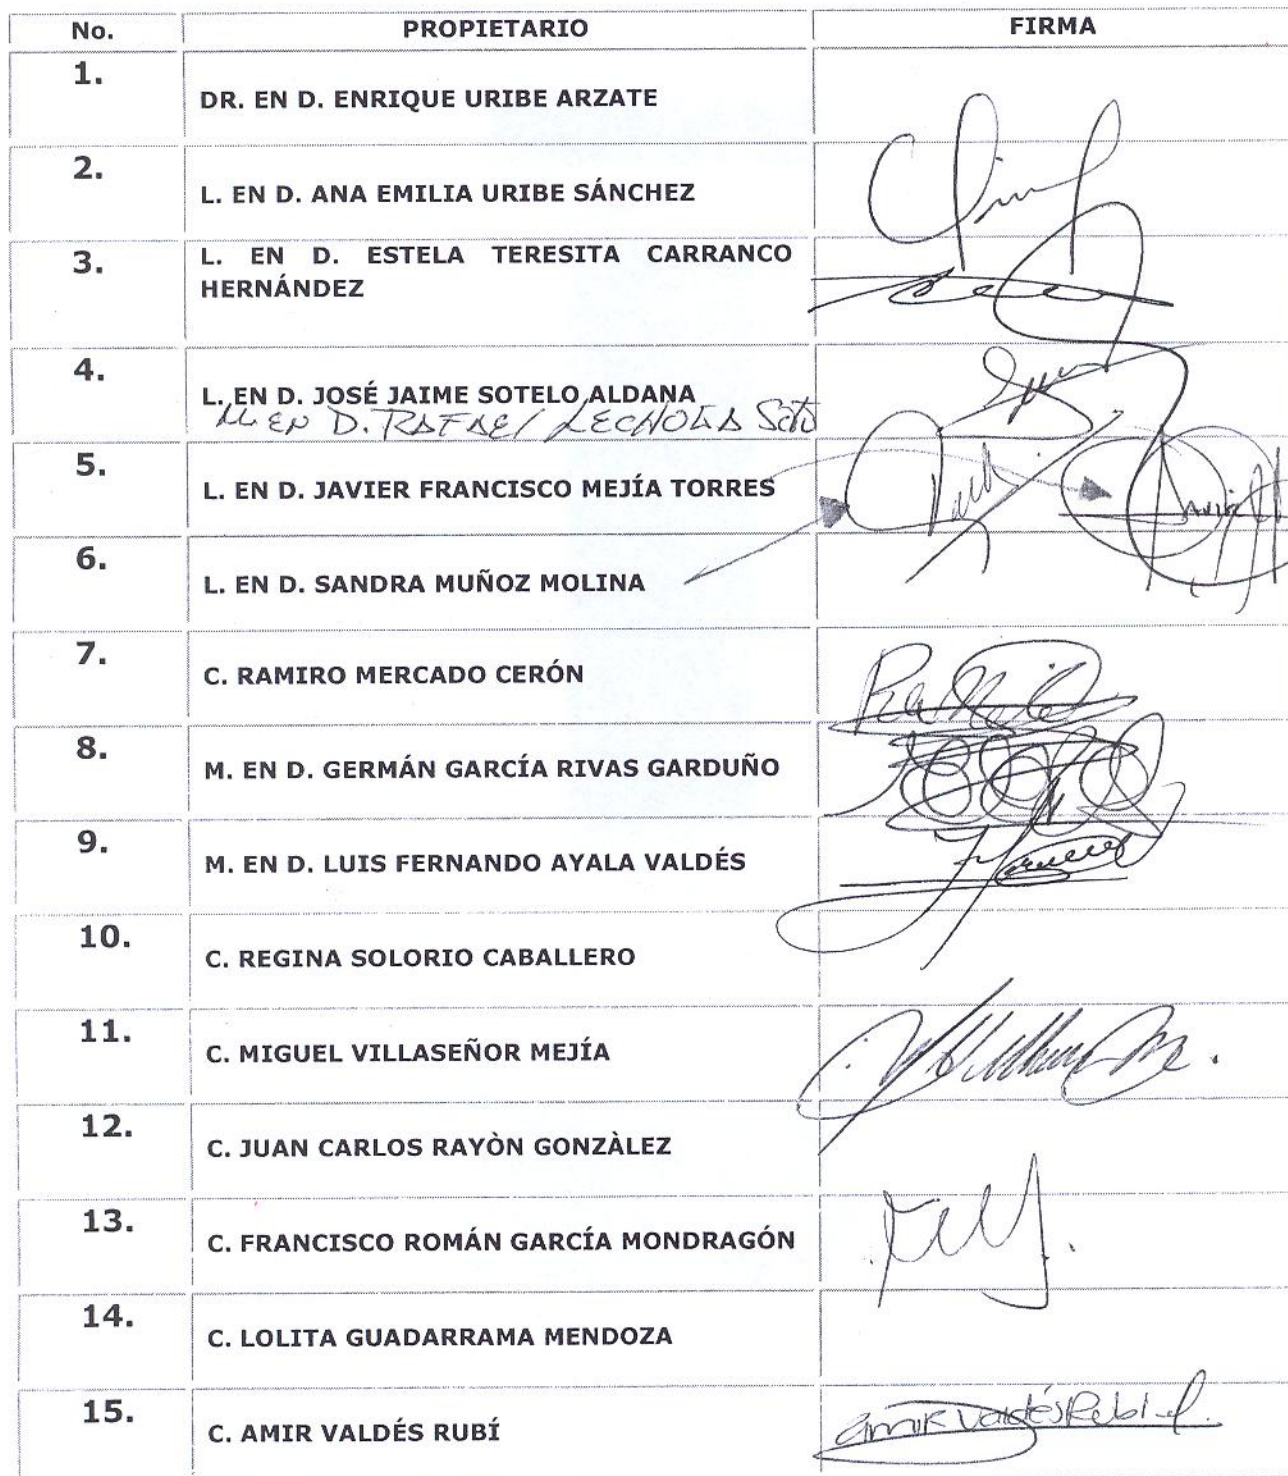 No. PROPIETARIO FIRMA
1. DR. EN D. ENRIQUE URIBE ARZATE
2. L. EN D. ANA EMILIA URIBE SÁNCHEZ
3. L. EN D. ESTELA TERESITA CARRANCO
HERNÁNDEZ
4. L. EN D. JOSÉ JAIME SOTELO ALDANA
M. EN D. RAFAEl Soto
5. L. EN D. JAVIER FRANCISCO MEJÍA TORRES
6. L. EN D. SANDRA MUÑOZ MOLINA
7. C. RAMIRO MERCADO CERÓN
8. M. EN D. GERMÁN GARCÍA RIVAS GARDUÑO
9. M. EN D. LUIS FERNANDO AYALA VALDÉS
10. C. REGINA SOLORIO CABALLERO
11. C. MIGUEL VILLASEÑOR MEJÍA
12. C. JUAN CARLOS RAYÒN GONZÀLEZ
13. C. FRANCISCO ROMÁN GARCÍA MONDRAGÓN
14. C. LOLITA GUADARRAMA MENDOZA
15. C. AMIR VALDÉS RUBÍ amir Valdés Rubi